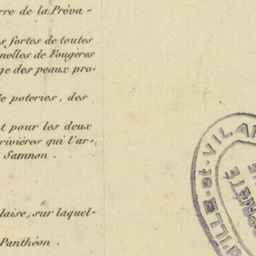 rre de la Préva -
s fortes de toutes
nelles de Fougères
ge des peaux pro-
e poteries, des
t pour les deux
rivières qui l'ar-
Samnon.
laise, sur laquel-
Panthéon.
ILLE-et-VILA